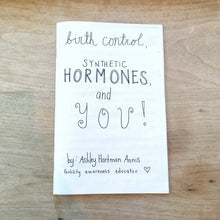 birth control,
SYNTHETIC
HORMONES,
and
YOU!
by: Ashley Hartman Annis
fertility awareness educator ♡